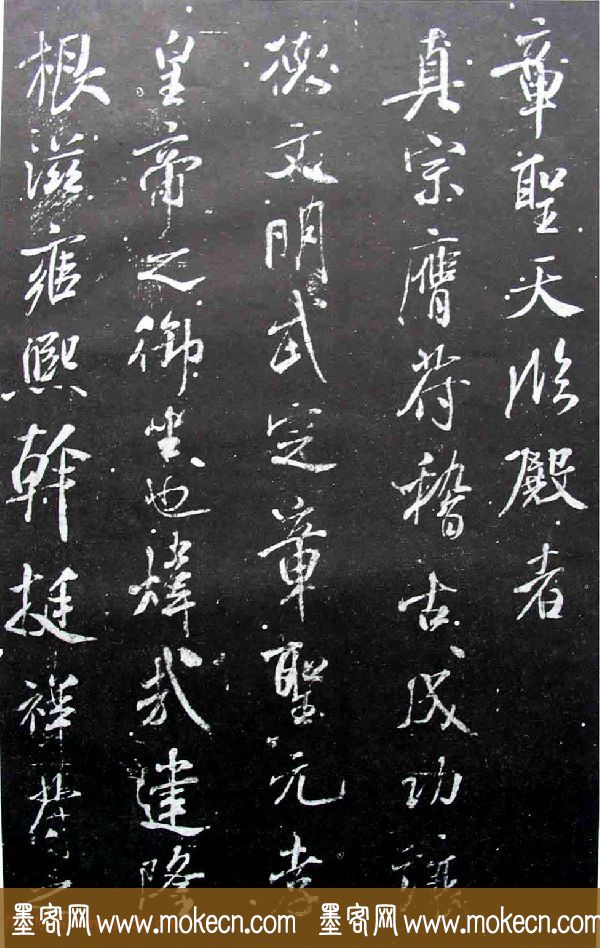 章聖天臨殿者
真宗膺符稽古成功讓
德文明武定章聖元孝
皇帝之御坐也煒哉建隆
根滋雍熙幹挺祥符
墨客网 www.mokecn.com 墨客网 www.mokecn.com